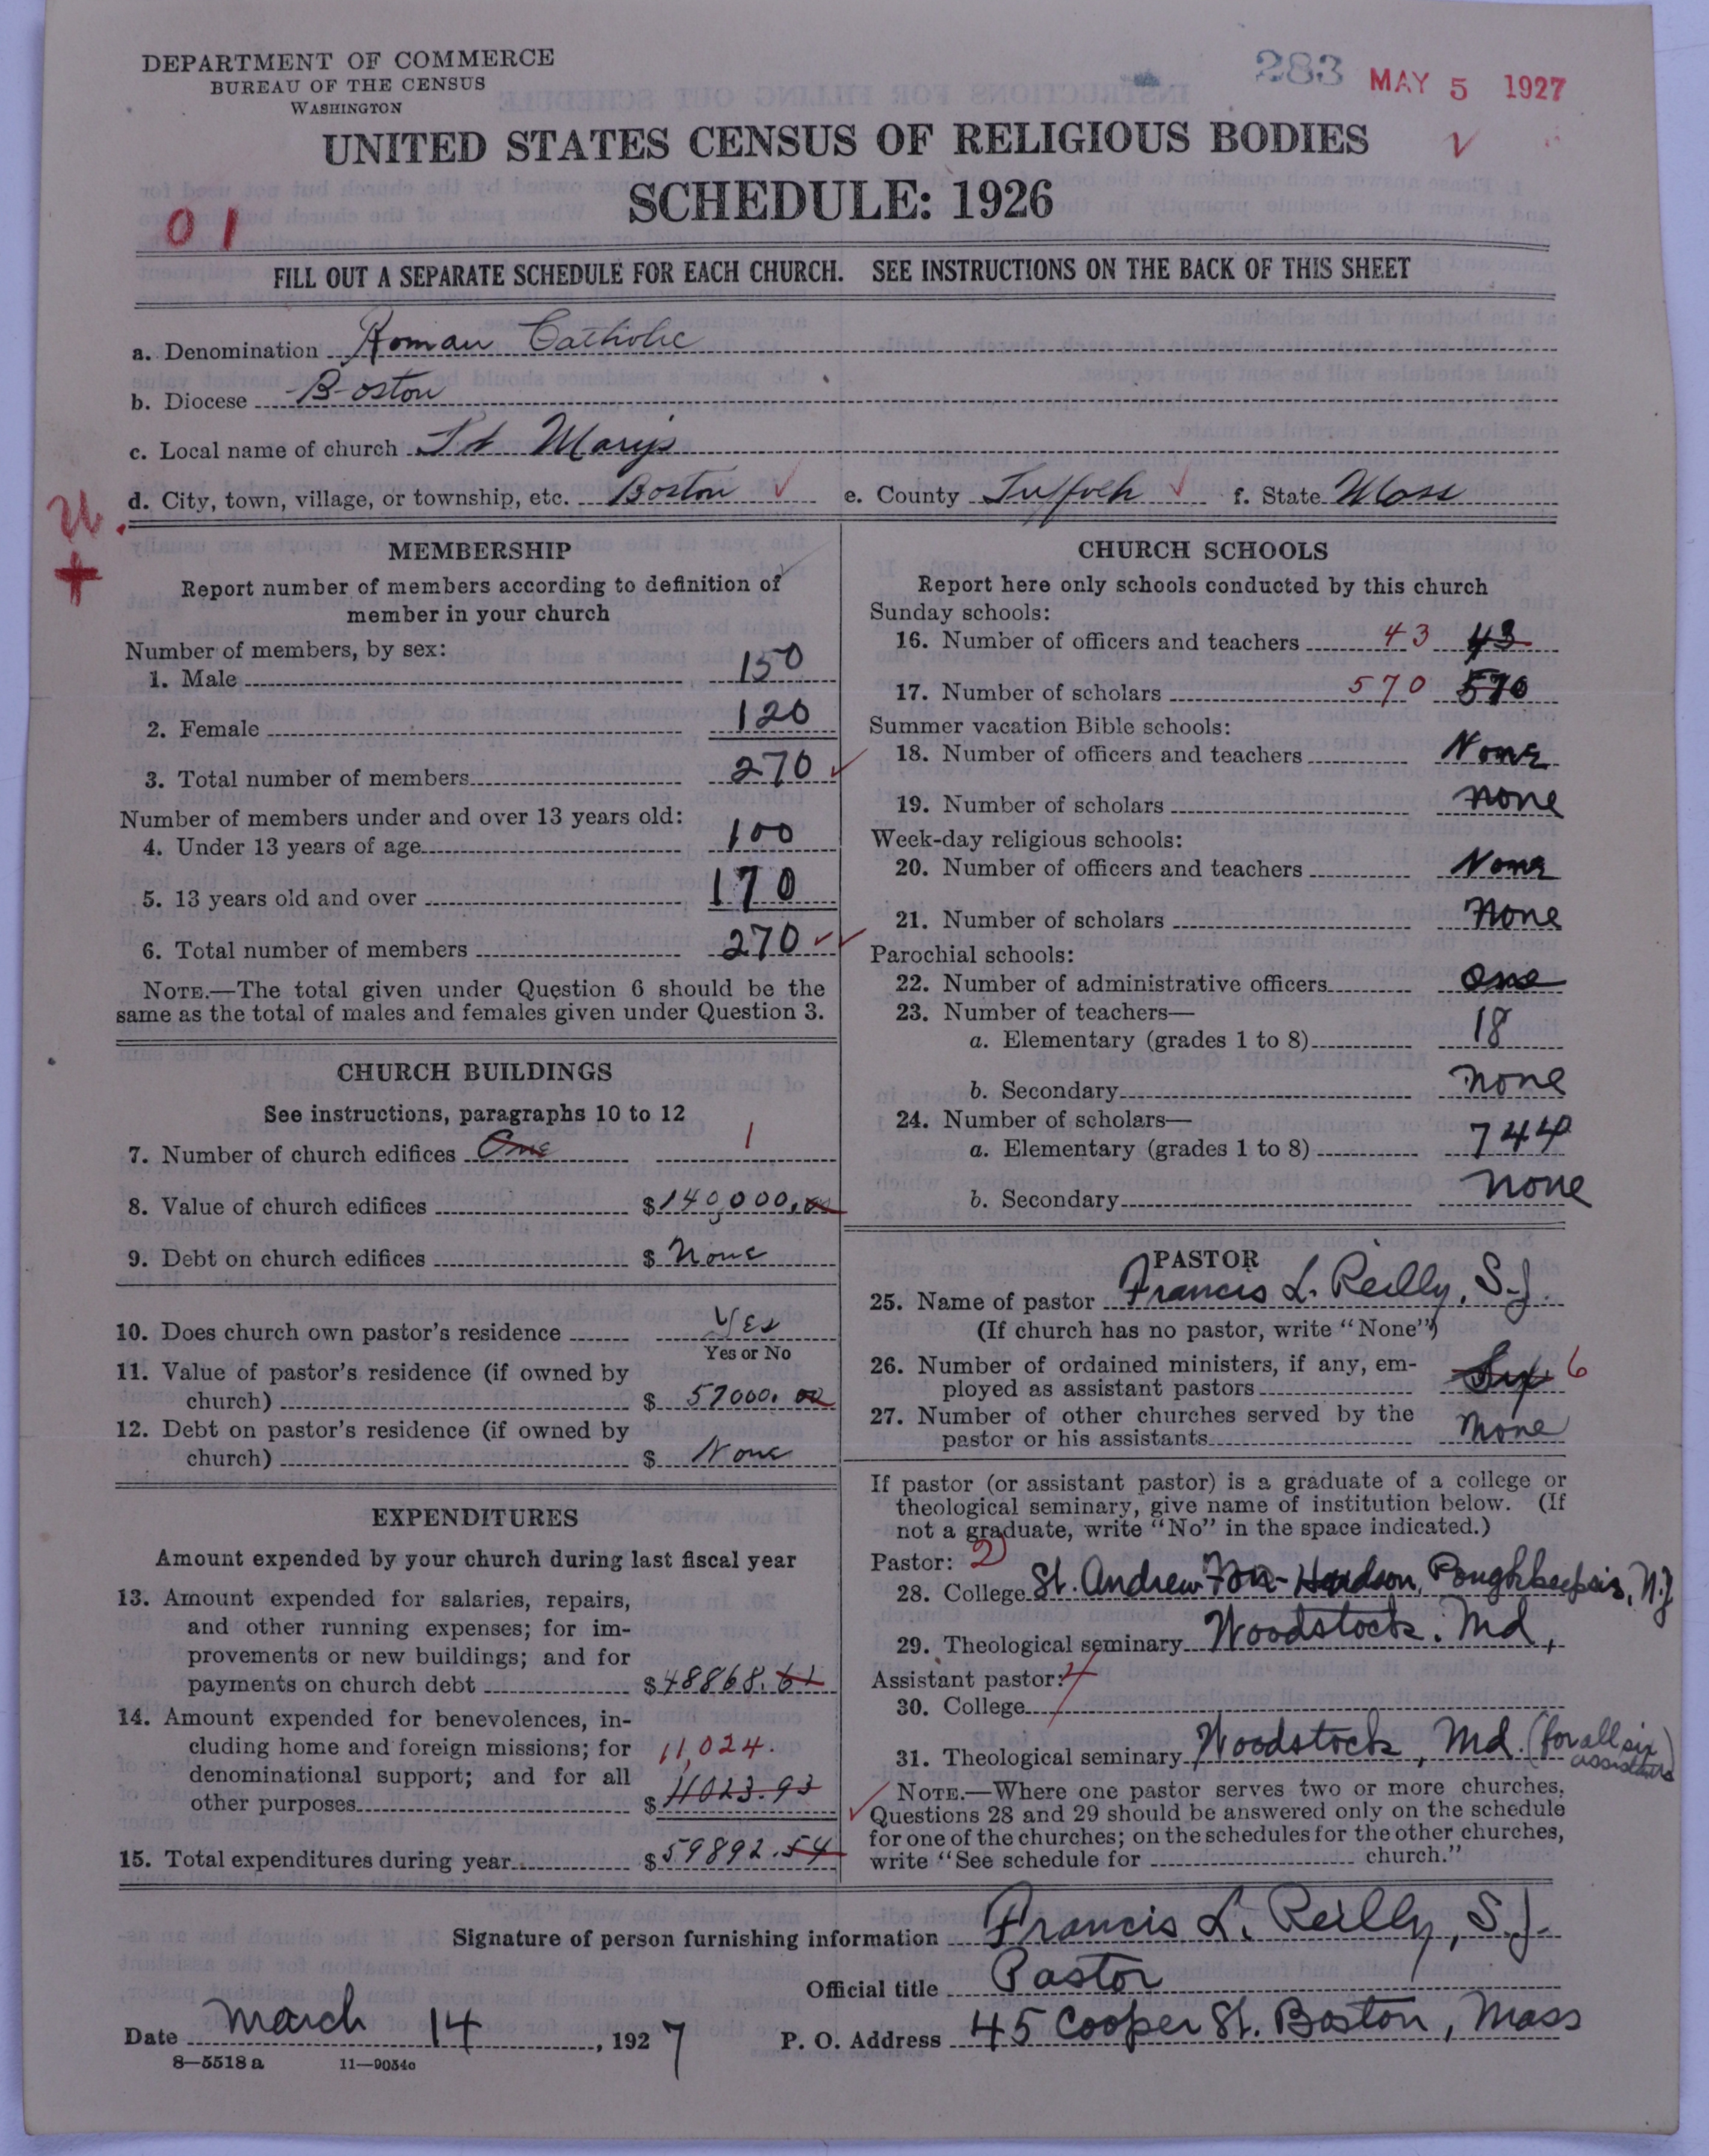 DEPARTMENT OF COMMERCE
BUREAU OF THE CENSUS
WASHINGTON
283 MAY 5 1927
UNITED STATES CENSUS OF RELIGIOUS BODIES
SCHEDULE: 1926
01
FILL OUT A SEPARATE SCHEDULE FOR EACH CHURCH. SEE INSTRUCTIONS ON THE BACK OF THIS SHEET
a. Denomination Roman Catholic
b. Diocese Boston
c. Local name of church St Mary's
d. City, town, village, or township, etc. Boston e. County Suffolk f. State Mass
MEMBERSHIP
Report number of members according to definition of
member in your church
Number of members, by sex:
1. Male 150
2. Female 120
3. Total number of members 270
Number of members under and over 13 years old:
4. Under 13 years of age 100
5. 13 years old and over 170
6. Total number of members 270
NOTE.—The total given under Question 6 should be the
same as the total of males and females given under Question 3.
CHURCH BUILDINGS
See instructions, paragraphs 10 to 12
7. Number of church edifices One 1
8. Value of church edifices $140,000.00
9. Debt on church edifices $ None
10. Does church own pastor's residence Yes
Yes or No
11. Value of pastor's residence (if owned by
church) $ 57000.00
12. Debt on pastor's residence (if owned by
church) $ None
EXPENDITURES
Amount expended by your church during last fiscal year
13. Amount expended for salaries, repairs,
and other running expenses; for im-
provements or new buildings; and for
payments on church debt $48868.61
14. Amount expended for benevolences, in-
cluding home and foreign missions; for 11,024.
denominational support; and for all
other purposes $11023.93
15. Total expenditures during year $59892.54
CHURCH SCHOOLS
Report here only schools conducted by this church
Sunday schools:
16. Number of officers and teachers 43 43
17. Number of scholars 570 570
Summer vacation Bible schools:
18. Number of officers and teachers None
19. Number of scholars none
Week-day religious schools:
20. Number of officers and teachers None
21. Number of scholars None
Parochial schools:
22. Number of administrative officers one
23. Number of teachers—
a. Elementary (grades 1 to 8) 18
b. Secondary none
24. Number of scholars—
a. Elementary (grades 1 to 8) 744
b. Secondary none
PASTOR
25. Name of pastor Francis L. Reilly, S.J.
(If church has no pastor, write "None")
26. Number of ordained ministers, if any, em-
ployed as assistant pastors Six 6
27. Number of other churches served by the
pastor or his assistants None
If pastor (or assistant pastor) is a graduate of a college or
theological seminary, give name of institution below. (If
not a graduate, write "No" in the space indicated.)
Pastor: 2
28. College St. Andrew on-Hudson, Poughkeepsie, N.Y
29. Theological seminary Woodstock. Md,
Assistant pastor:
30. College
31. Theological seminary Woodstock, Md. (for all six
assistants)
NOTE.—Where one pastor serves two or more churches,
Questions 28 and 29 should be answered only on the schedule
for one of the churches; on the schedules for the other churches,
write "See schedule for church."
Signature of person furnishing information Francis L. Reilly, S.J.
Official title Pastor
Date March 14, 1927 P. O. Address 45 Cooper St. Boston, Mass
8—5518 a 11—9054c